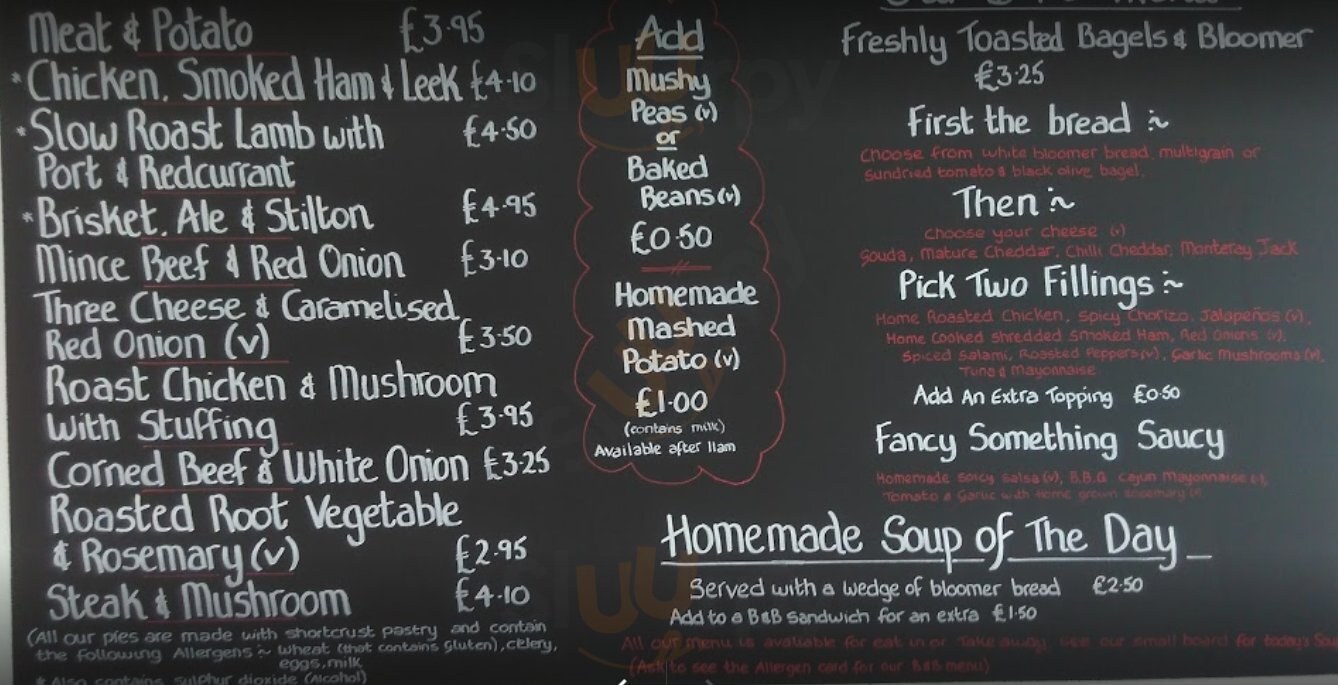 Meat & Potato £3.95
*Chicken, Smoked Ham & Leek £4.10
*Slow Roast Lamb with £4.50
Port & Redcurrant
*Brisket, Ale & Stilton £4.95
Mince Beef & Red Onion £3.10
Three Cheese & Caramelised
Red Onion (v) £3.50
Roast Chicken & Mushroom
With Stuffing £3.95
Corned Beef & White Onion £3.25
Roasted Root Vegetable
& Rosemary (v) £2.95
Steak & Mushroom £4.10
(All our pies are made with shortcrust pastry and contain
the following Allergens :~ wheat (that contains gluten), celery,
eggs, milk
* Also contains sulphur dioxide (Alcohol)
Add
Mushy
Peas (v)
or
Baked
Beans (v)
£0.50
Homemade
Mashed
Potato (v)
£1.00
(contains milk)
Available after 11am
Freshly Toasted Bagels & Bloomer
£3.25
First the bread :~
Choose from white bloomer bread, multigrain or
sundried tomato & black olive bagel.
Then :~
Choose your cheese (v)
Gouda, Mature Cheddar, Chilli Cheddar, Monteray Jack
Pick Two Fillings :~
Home Roasted Chicken, Spicy Chorizo, Jalapeños (v),
Home Cooked Shredded Smoked Ham, Red Onions (v),
Spiced Salami, Roasted Peppers (v), Garlic Mushrooms (v),
Tuna & Mayonnaise
Add An Extra Topping £0.50
Fancy Something Saucy
Homemade Spicy Salsa (v), B.B.Q, Cajun Mayonnaise (v),
Tomato & Garlic with home grown rosemary (v)
Homemade Soup of The Day
Served with a wedge of bloomer bread £2.50
Add to a B&B Sandwich for an extra £1.50
All our menu is available for eat in or Take away, use our small board for today's
(Ask to see the Allergen card for our B&B menu)